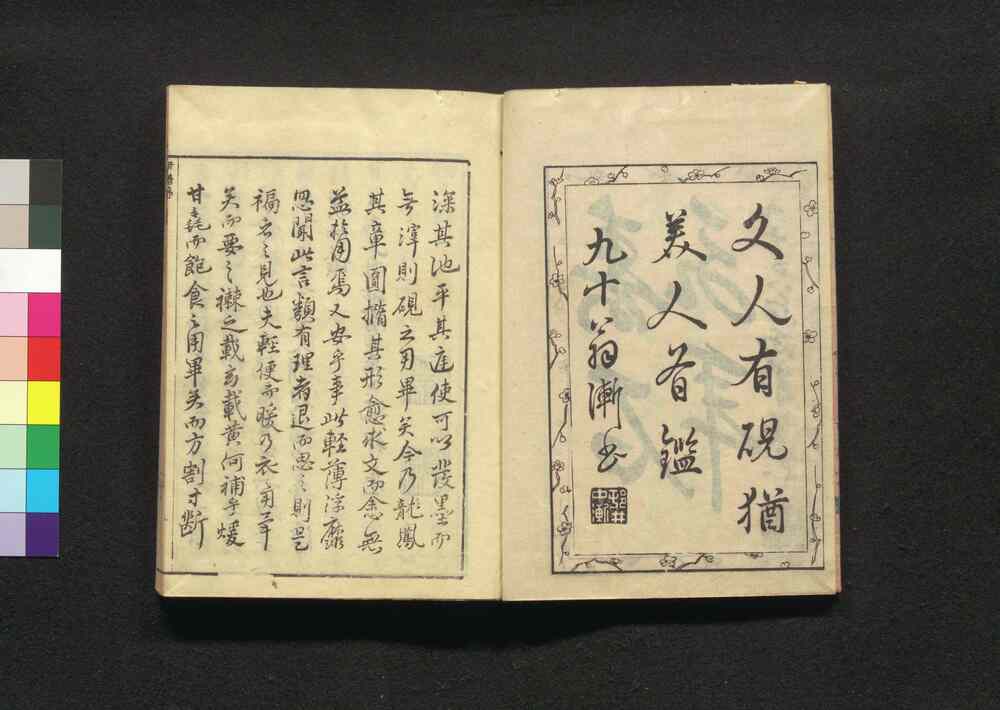 文人有硯猶
美人有鑑
九十翁漸書
深其池平其庭使可以發墨而
無滓則硯之用畢矣今乃龍鳳
其章圓橢其形愈求文而愈無
益於用焉又安乎事此輕薄浮靡
思聞此言類有理者退而思之則是
福云之見也夫輕便而暖乃衣之用畢
矣而要之襋之載玄載黄何補乎煖
甘毳而飽食之用畢矣而方割寸断